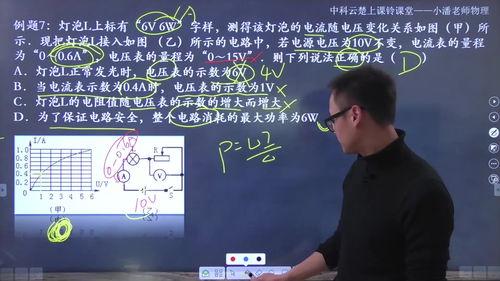 中科云楚上课铃课堂——小潘老师物理
例题7：灯泡L上标有“6V 6W”字样，测得该灯泡的电流随电压变化关系如图（甲）所
示．现把灯泡L接入如图（乙）所示的电路中，若电源电压为10V不变，电流表的量程为
“0～0.6A” 电压表的量程为“0～15V”．则下列说法正确的是（ D ）
A．灯泡L正常发光时，电压表的示数为6V × 4V
B．当电流表示数为0.4A时，电压表的示数为1V ×
C．灯泡L的电阻值随电压表的示数的增大而增大 ×
D．为了保证电路安全，整个电路消耗的最大功率为6W
I/A
1.0
0.8
0.6
0.4
0.2
0 1 2 3 4 5 6 U/V
（甲）
0~0.6A
L R V A S
10V
P=UI